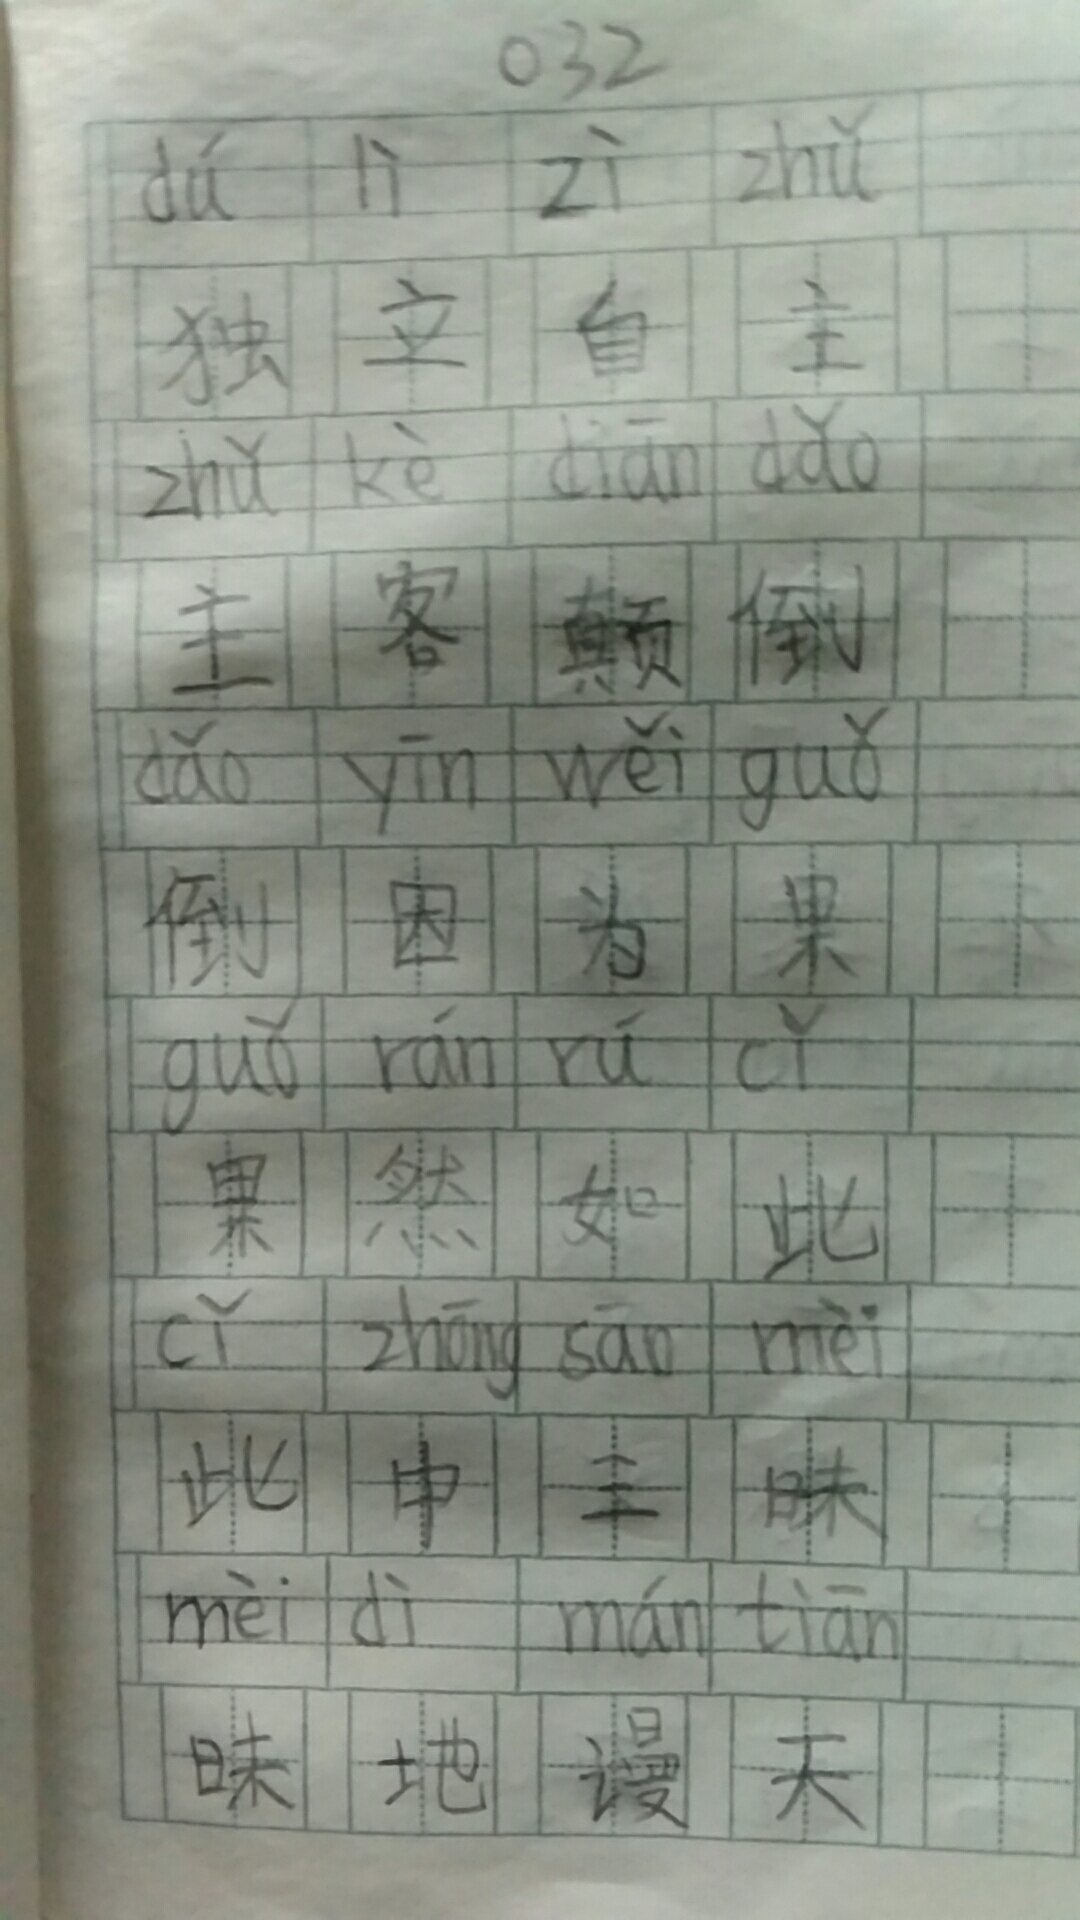 032
dú lì zì zhǔ
独立自主
zhǔ kè diān dǎo
主客颠倒
dǎo yīn wěi guǒ
倒因为果
guǒ rán rú cǐ
果然如此
cǐ zhōng sān mèi
此中三昧
mèi dì mán tiān
昧地谩天